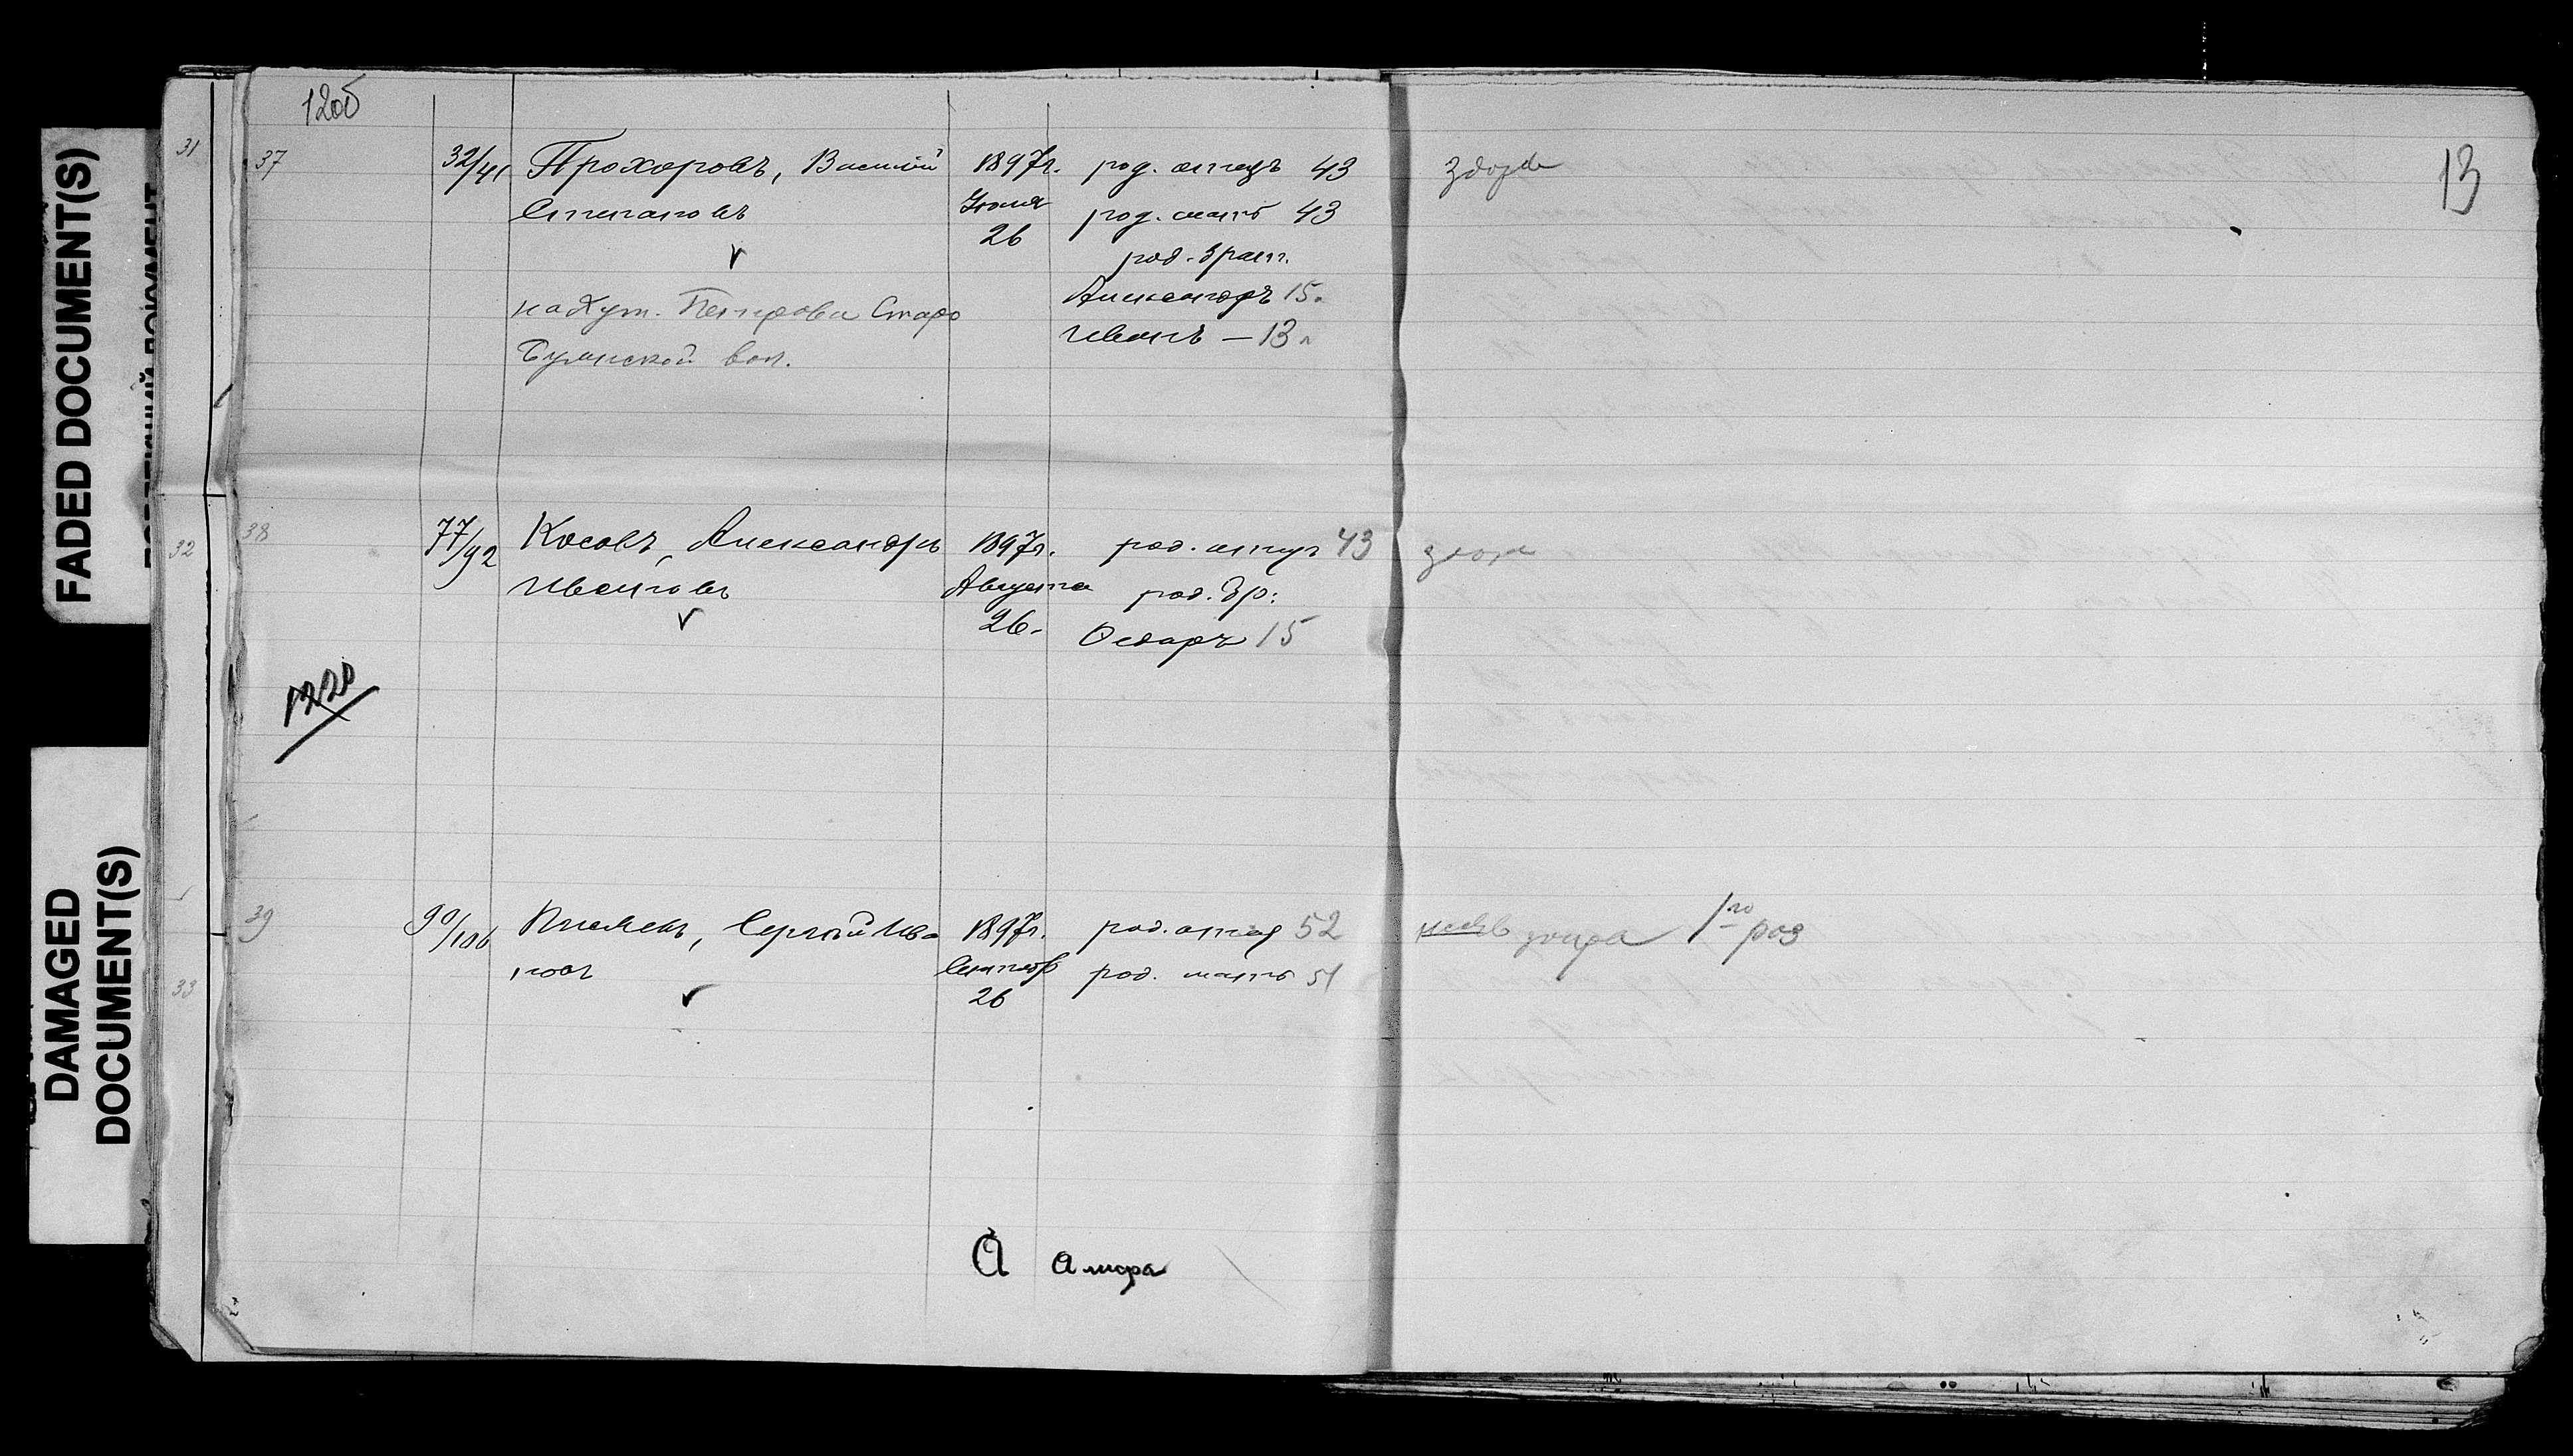 FADED DOCUMENT(S)
DAMAGED
DOCUMENT(S)
12об
13
31
37
32/41
Прохоровъ, Василій
Степановъ
на хут. Петрова Старо
Бузинской вол.
1897г.
Іюля
26
род. отецъ 43
род. мать 43
род. брат.
Александръ 15.
Иванъ — 13 л
здоров
32
38
77/92
Косовъ, Александръ
Ивановъ
1897г.
Августа
26.
род. отецъ 43
род. бр:
Өедоръ 15
1220
39
33
90/106
Сергѣй Ива
новъ
1897г.
Сентябр
26
род. отец 52
род. мать 51
1го раз